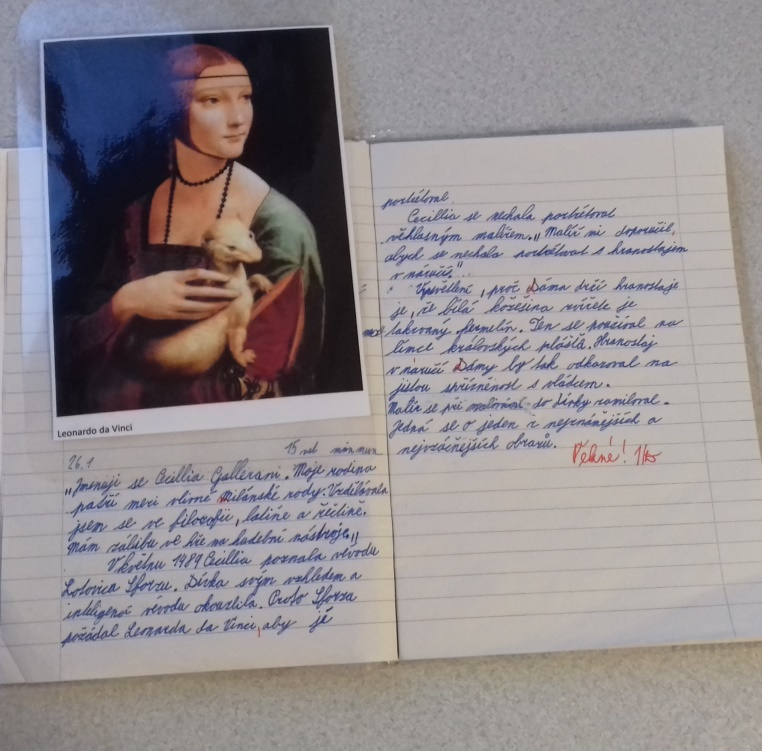 Leonardo da Vinci
26.1
"Jmenuji se Cecillia Gallerani. Moje rodina
patří mezi vlivné milánské rody. Vzdělávala
jsem se ve filozofii, latině a řečtině.
Mám zálibu ve hře na hudební nástroje."
V květnu 1489 Cecillia poznala vévodu
Lodovica Sforzu. Dívka svým vzhledem a
inteligencí vévodu okouzlila. Proto Sforza
požádal Leonarda da Vinci, aby jí
portrétoval.
Cecillia se nechala portrétovat
věhlasným malířem. "Malíř mi doporučil,
abych se nechala portrétovat s hranostajem
v náručí."
Vysvětlení, proč Dáma drží hranostaje
je, že bílá kožešina zvířete je
takzvaný hermelín. Ten se používal na
límce královských plášťů. Hranostaj
v náručí Dámy by tak odkazoval na
jistou spřízněnost s vládcem.
Malíř se při malování do dívky zamiloval.
Jedná se o jeden z nejznámějších a
nejvzácnějších obrazů.
Pěkné!